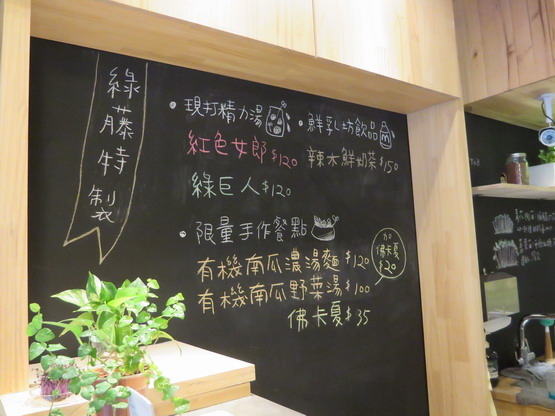 綠藤特製
• 現打精力湯
紅色女郎 $120
綠巨人 $120
• 鮮乳坊飲品
辣木鮮奶茶 $150
• 限量手作餐點
有機南瓜濃湯麵 $120
有機南瓜野菜湯 $100
佛卡夏 $35
加
佛卡夏
$20